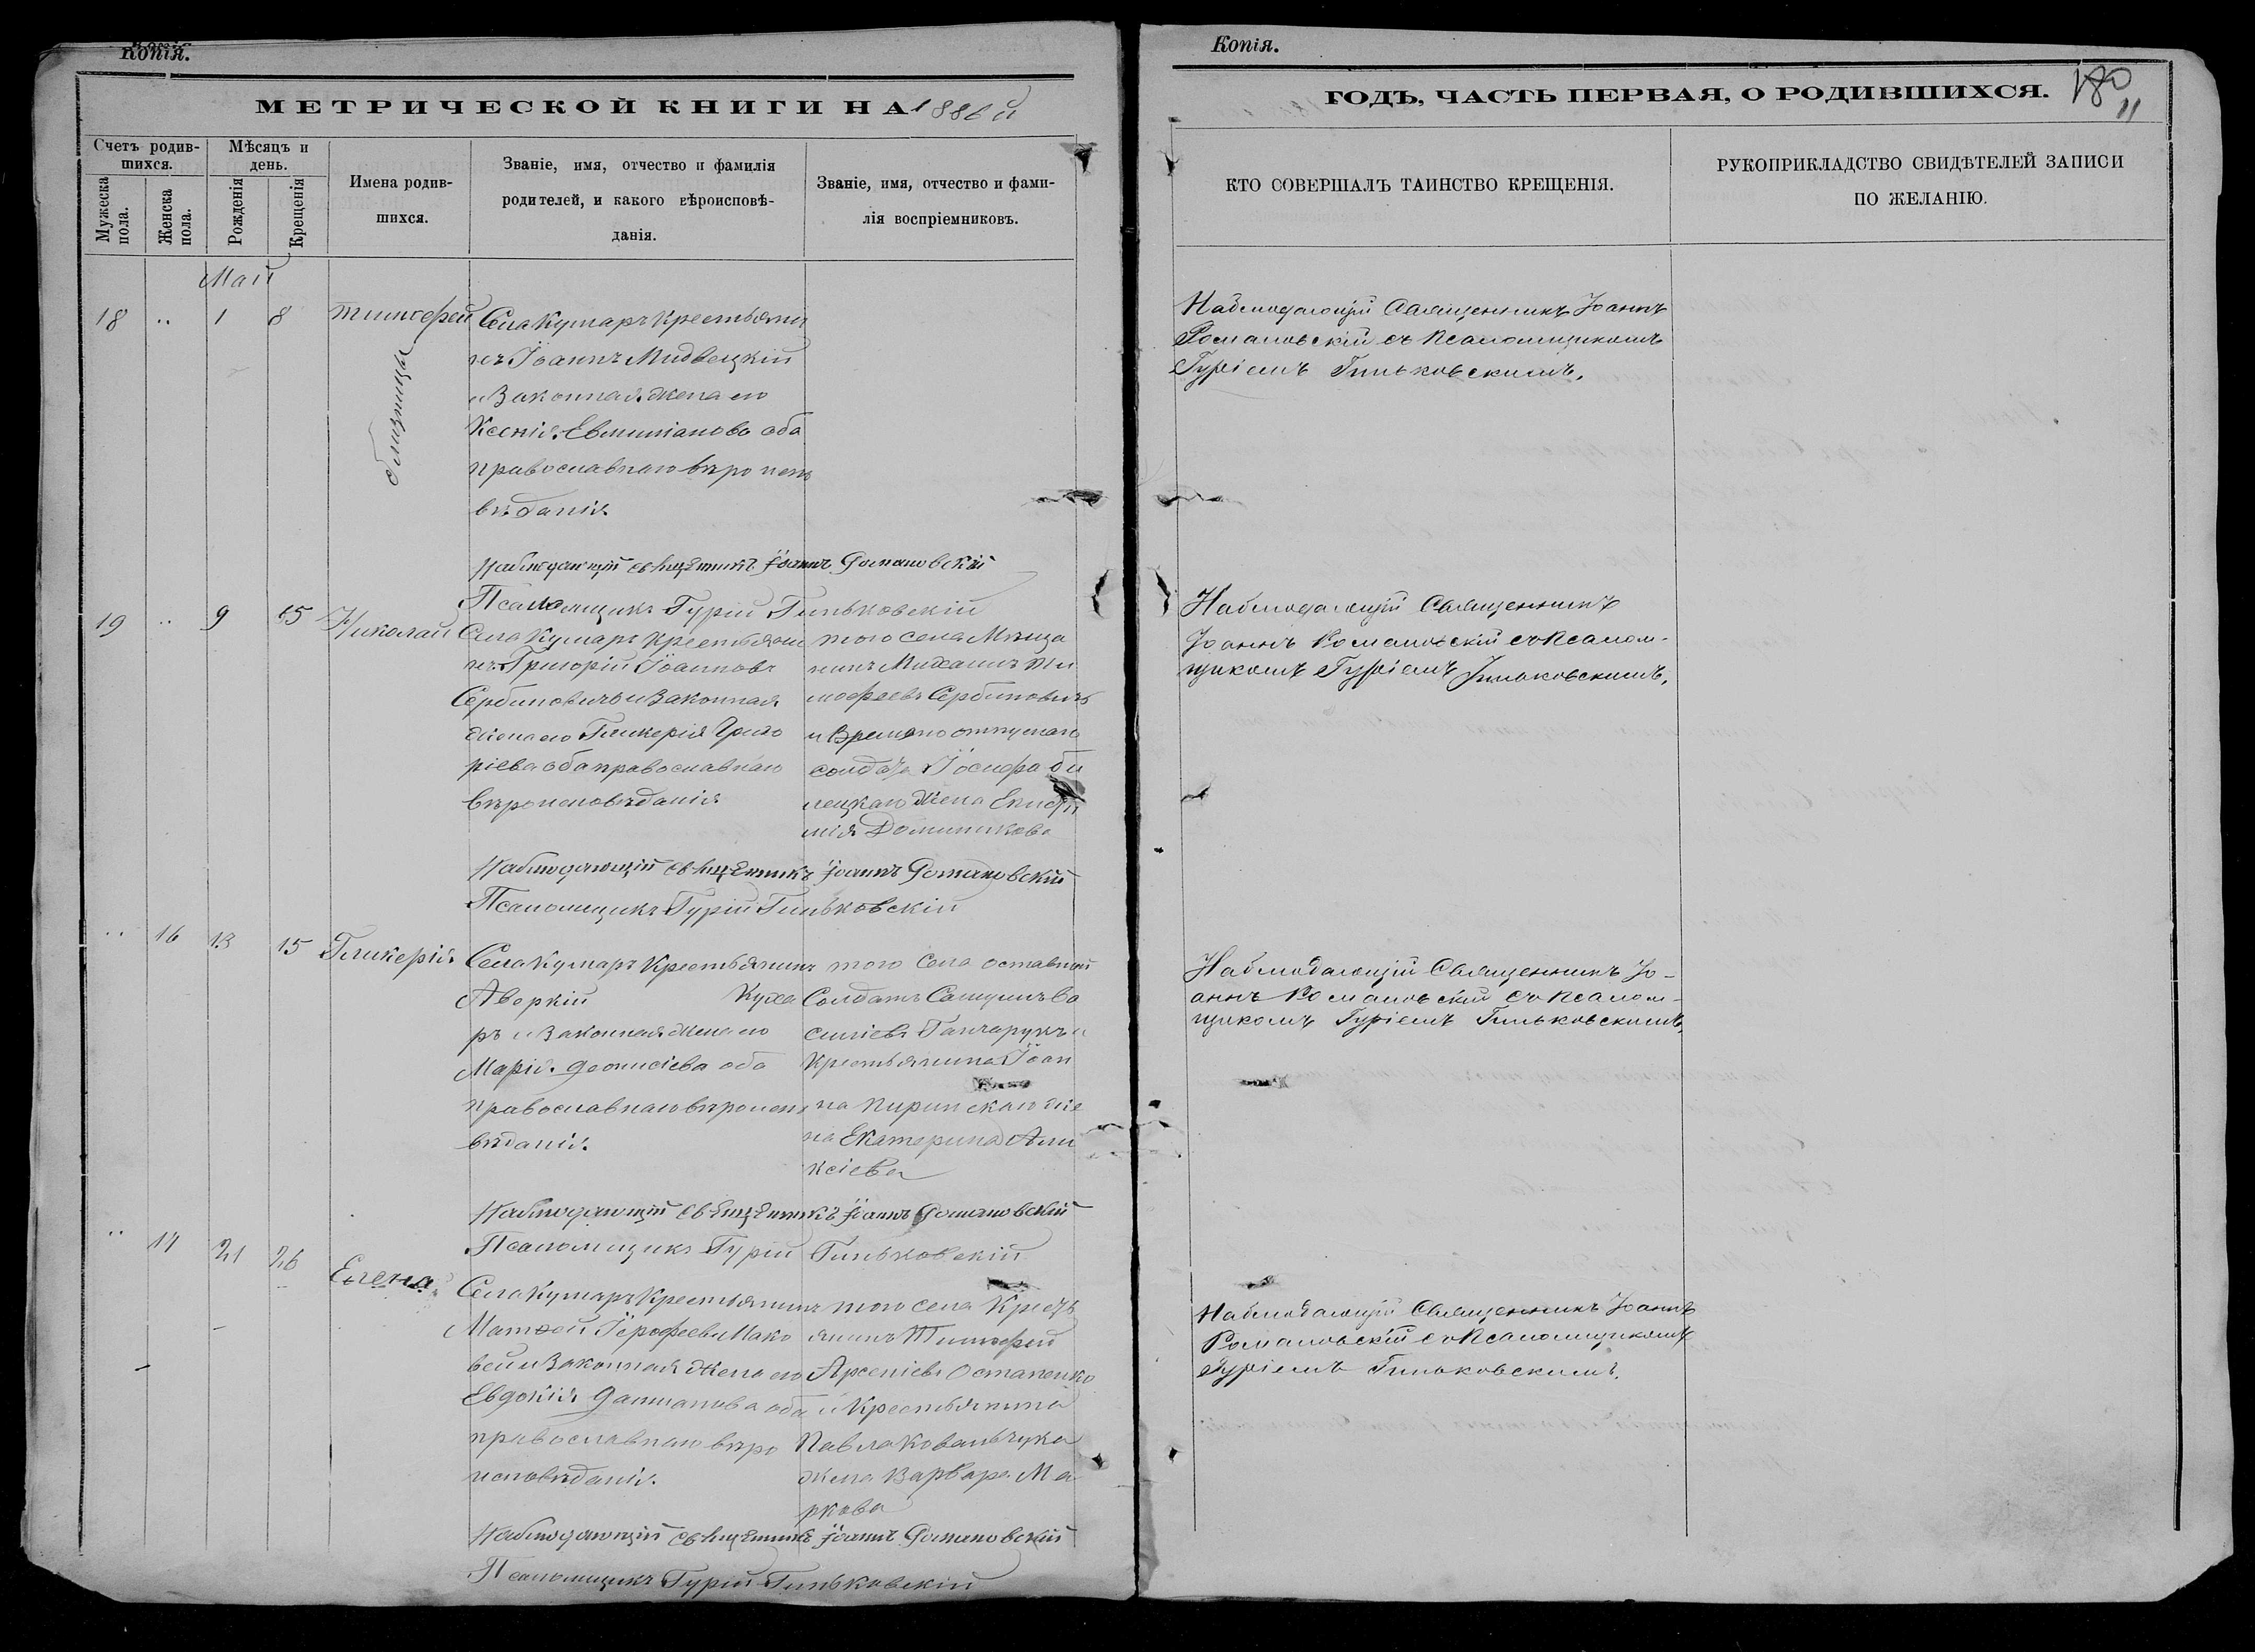 Копія.
МЕТРИЧЕСКОЙ КНИГИ НА 1886 й
Счетъ родив-
шихся.
Мѣсяцъ и
день.
Мужеска
пола.
Женска
пола.
Рожденія
Крещенія
Имена родив-
шихся.
Званіе, имя, отчество и фамилія
родителей, и какого вѣроисповѣ-
данія.
Званіе, имя, отчество и фами-
лія воспріемниковъ.
Май
18 .. 1 8 Тимофей
близнецы
Села Кумаръ Крестьяни
нъ Іоаннъ Мидвецкій
и Законная жена его
Ксенія Евтиміанова оба
православнаго вѣроиспо
вѣданія
Наблюдающій священникъ Іоаннъ Романовскій
Псаломщикъ Гурій Гиньковскій
19 .. 9 15 Николай
Села Кумаръ Крестьяни
нъ Григорій Іоанновъ
Сербиновичъ и Законная
жена его Гликерія Григо
ріева оба православнаго
вѣроисповѣданія
того села Мѣща
нинъ Михаилъ Ти
мофеевъ Сербиновичъ
и Времяно отпускаго
солдата Іосифа Би
лецкаго жена Евфи
мія Доминикова
Наблюдающій священникъ Іоаннъ Романовскій
Псаломщикъ Гурій Гиньковскій
.. 16 13 15 Гликерія
Села Кумаръ Крестьянинъ
Аверкій Куха
ръ и Законная жена его
Марія Деонисіева оба
православнаго вѣроиспо
вѣданія
того Села оставный
Солдатъ Самуилъ Ва
силіевъ Ганчарукъ и
Крестьянина Іоан
на Пиринскаго же
на Екатерина Али
ксіева
Наблюдающій священникъ Іоаннъ Романовскій
Псаломщикъ Гурій Гиньковскій
.. 17 21 26 Елена
Села Кумаръ Крестьянинъ
Матѳей Іерофеевъ Мако
вей и Законная жена его
Евдокія Даміанова оба
православнаго вѣро
исповѣданія
того села Кресть
янинъ Тимофей
Арсеніевъ Остапенко
и Крестьянина
Павла Ковальчука
жена Варвара Ма
ркова
Наблюдающій священникъ Іоаннъ Романовскій
Псаломщикъ Гурій Гиньковскій
Копія.
ГОДЪ, ЧАСТЬ ПЕРВАЯ, О РОДИВШИХСЯ.
180
11
КТО СОВЕРШАЛЪ ТАИНСТВО КРЕЩЕНІЯ.
РУКОПРИКЛАДСТВО СВИДѢТЕЛЕЙ ЗАПИСИ
ПО ЖЕЛАНІЮ.
Наблюдающій Священникъ Іоаннъ
Романовскій съ Псаломщикомъ
Гуріемъ Гиньковскимъ,
Наблюдающій Священникъ
Іоаннъ Романовскій съ Псалом-
щикомъ Гуріемъ Гиньковскимъ,
Наблюдающій Священникъ Іо-
аннъ Романовскій съ Псалом-
щикомъ Гуріемъ Гиньковскимъ,
Наблюдающій Священникъ Іоаннъ
Романовскій съ Псаломщикомъ
Гуріемъ Гиньковскимъ.